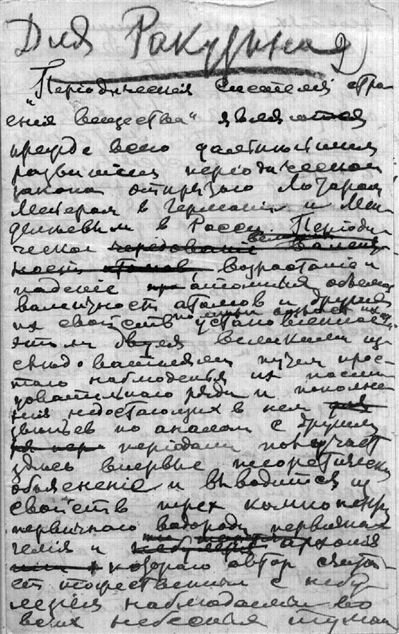 Для Ракузина
"Периодическия системы стро
ения вещества" являются
прежде всего дальнейшим
развитием периодическаго
закона открытаго Лотаром
Мейером в Германии и Мен
делеевым в России. Периоди
ческое чередование
ность атомов, возрастание и
падение атомных объемов
валентности атомов и других
их свойств установленное
этими двумя великими из
следователями путем прос
таго наблюдения их после
довательнаго ряда и пополне
ния недостающих в нем
звеньев по аналогии с другими
периодами получает
здесь впервые теоретическое
объяснение и выводится из
свойств трех компонентов
первичнаго водорода первичнаго
гелия и небулия архония
котораго автор счита
ет тождественным с небу
лием наблюдаемым во
всех небесных туман